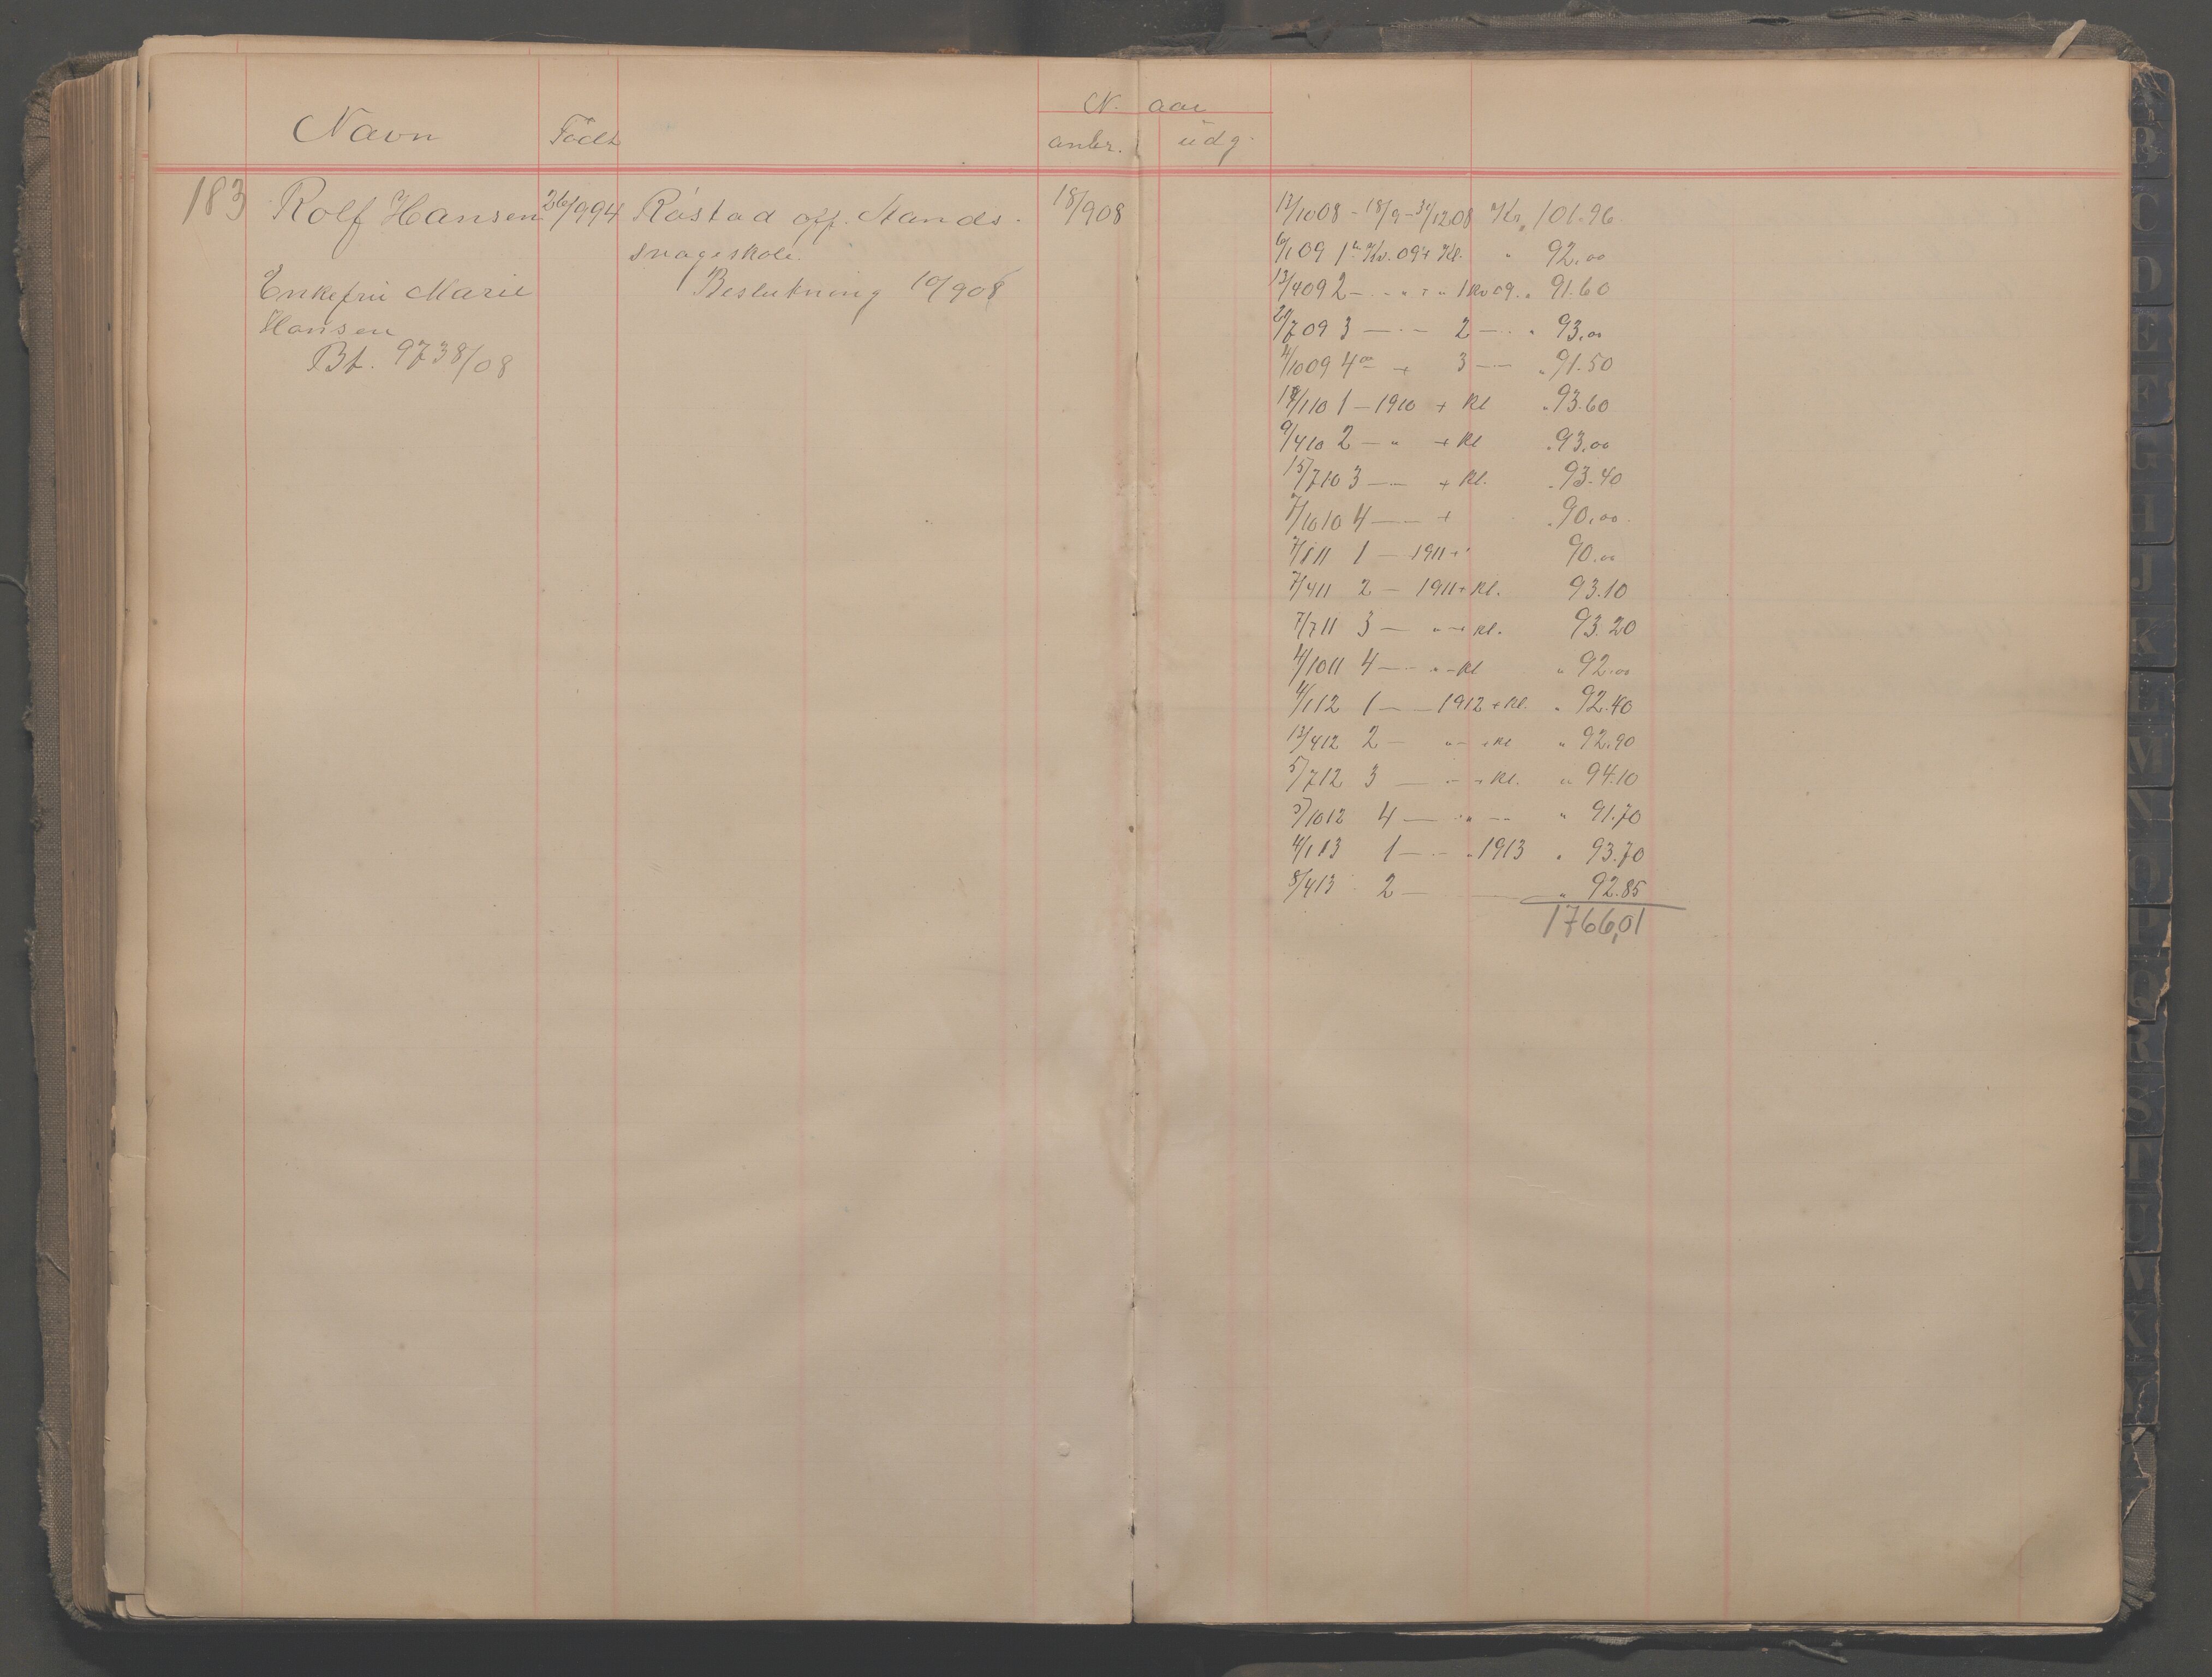 Navn Födt N. aar
anbr. udg.
183 Rolf Hansen 26/9 94 Råstad off. Aands- 18/9 08
svageskole.
Enkefru Marie Beslutning 10/9 08
Hansen
Bt. 9738/08
12/10 08 - 18/9 - 31/12 08 Kr. 101.96
6/1 09 1ste Kv. 09 + Kl. " 92.00
13/4 09 2 — " + " 1 Kv 09. " 91.60
2 — " 93.00
4/10 09 4de — + 3 — " 91.50
1 — 1910 + Kl " 93.60
9/4 10 2 — " + Kl " 93.00
15/7 10 3 — + Kl. " 93.40
7/10 10 4 — + " 90.00
7/1 11 1 — 1911 + 90.00
7/4 11 2 — 1911 + Kl. 93.10
7/7 11 3 — " + Kl. 93.20
4/10 11 4 — " - Kl " 92.00
4/1 12 1 — 1912 + Kl. " 92.40
13/4 12 2 — " + Kl " 92.90
5/7 12 3 — " + Kl. " 94.10
5/10 12 4 — " — " 91.70
4/1 13 1 — " 1913 " 93.70
8/4 13 2 — " 92.85
1766,01
A
B
C
D
E
F
G
I
J
K
L
M
N
O
P
Q
R
S
T
U